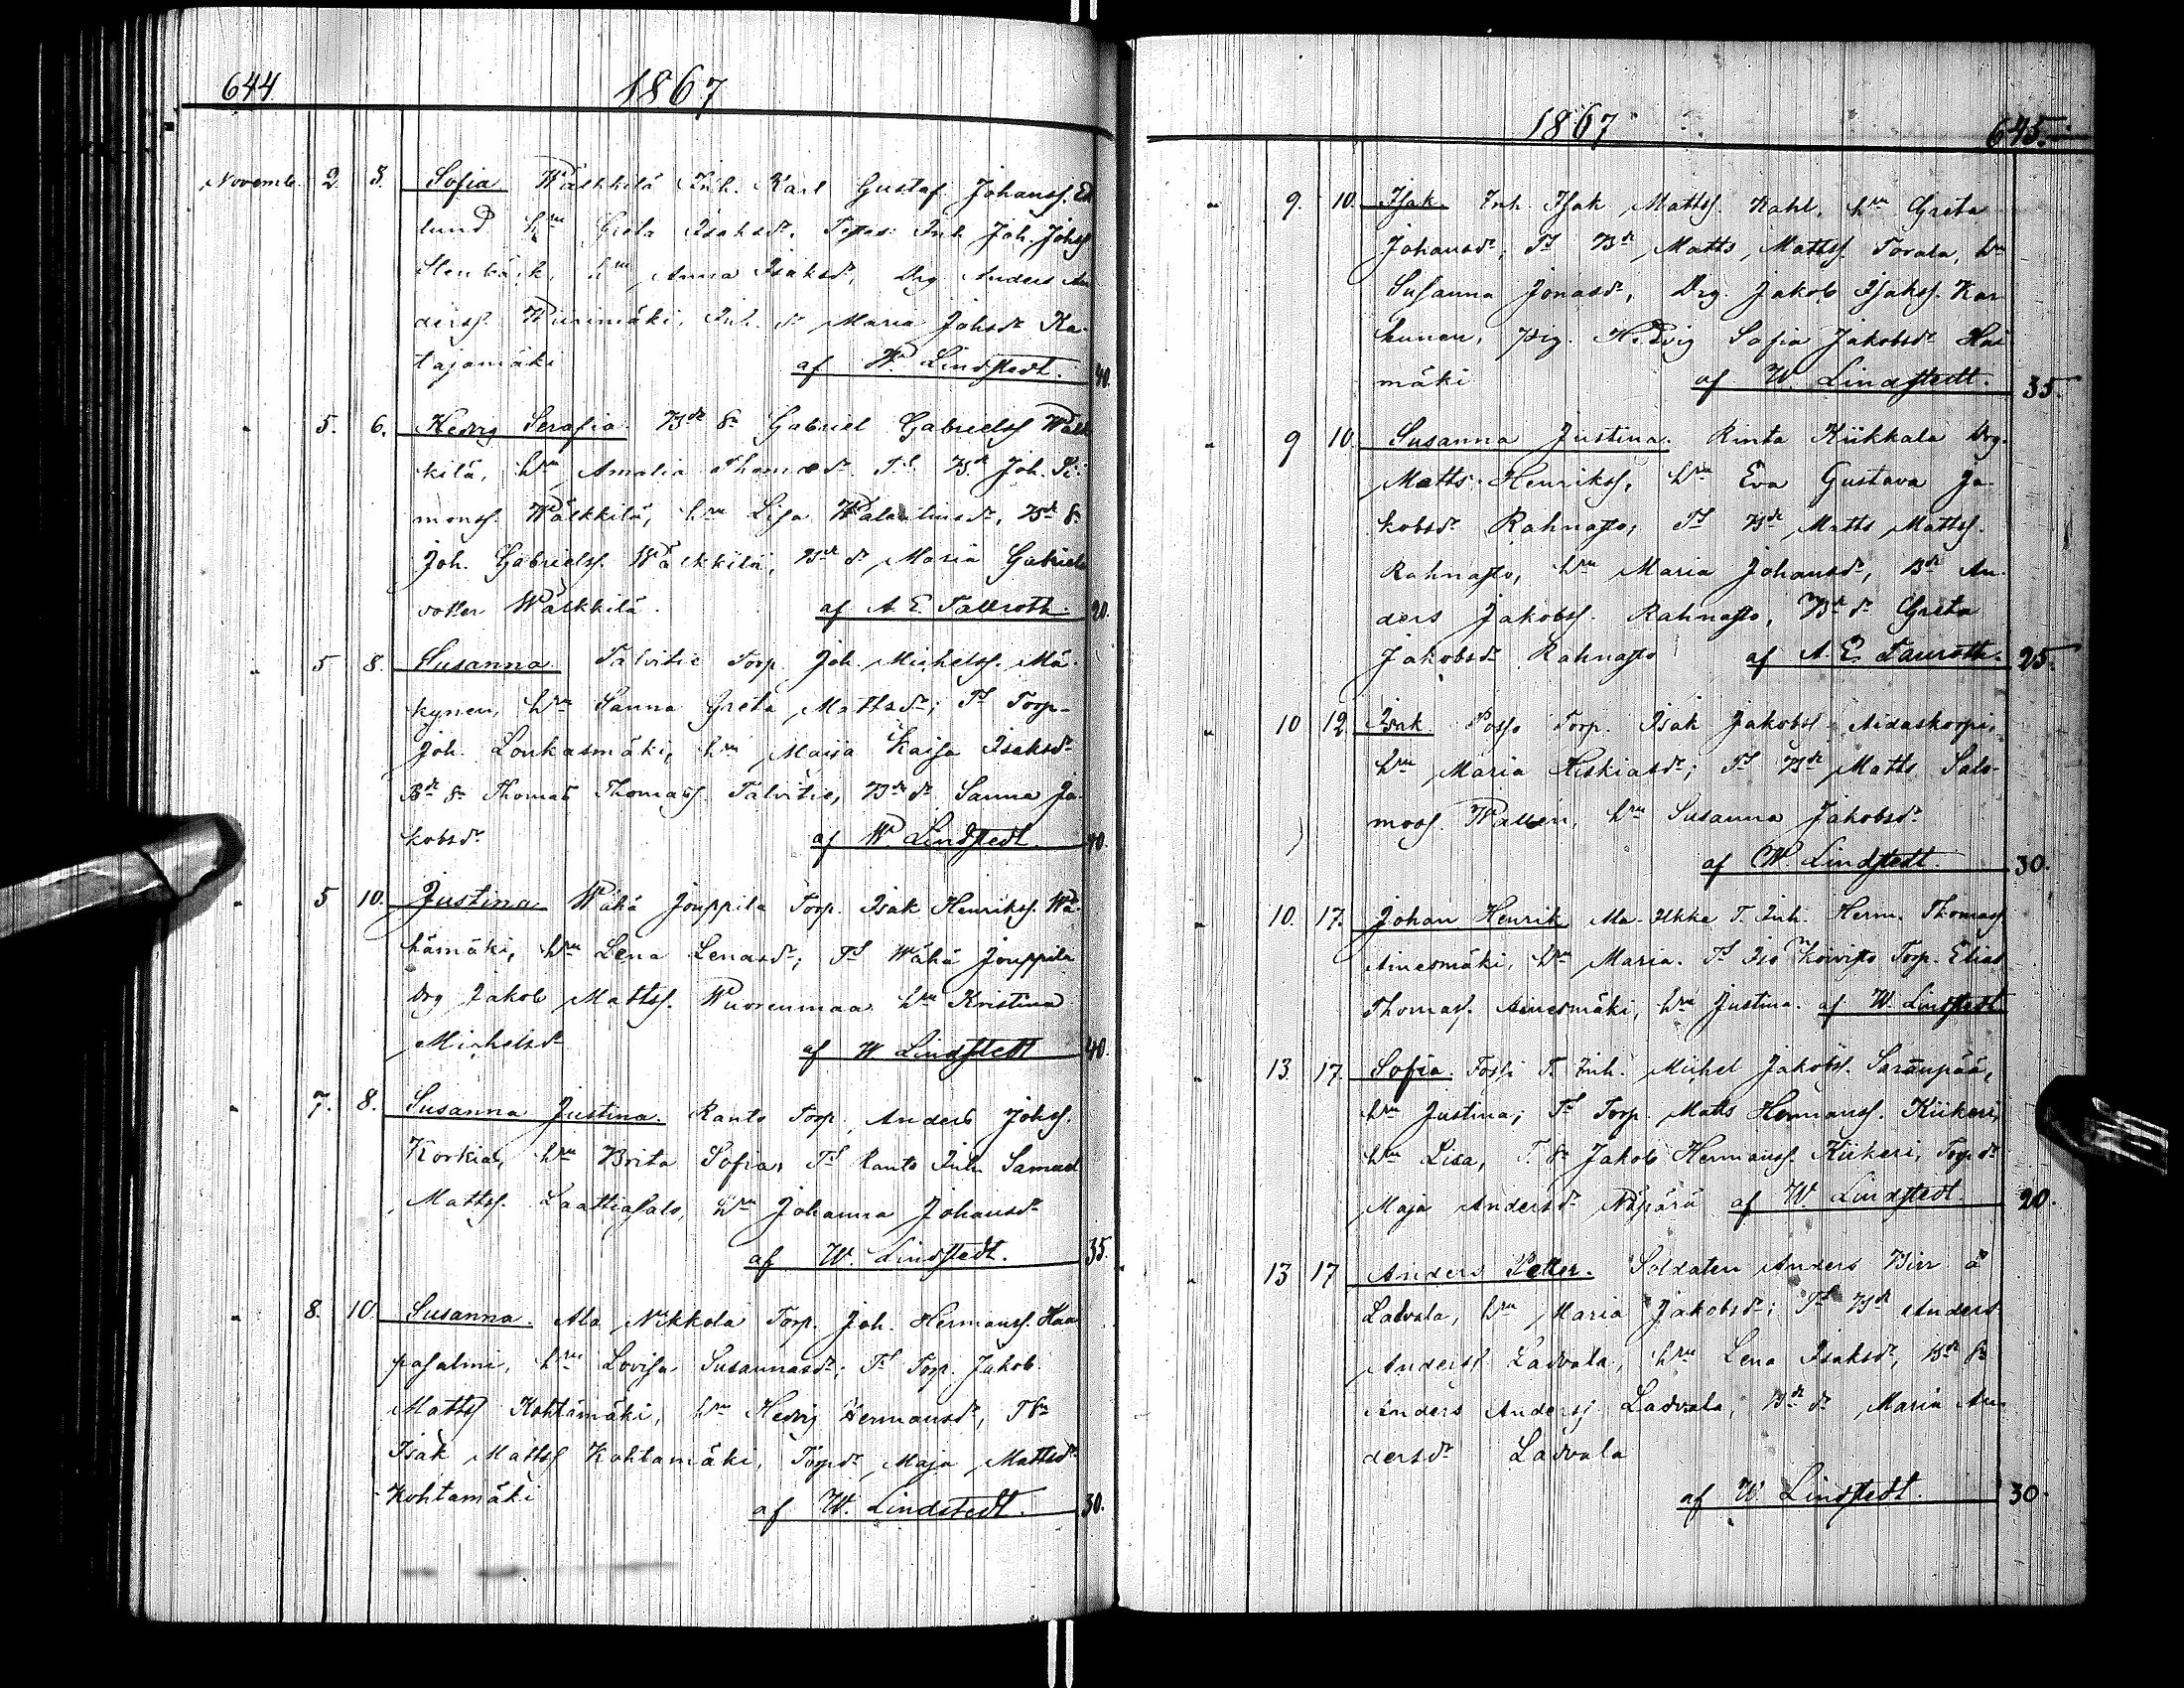 644 1867
Novemb. 2. 3. Sofia Wälkkilä Inh. Karl Gustaf Johanss. Ek
lund hru Greta Isaksdr. Inh. Joh. Johss
Stenbäck, hru Anna Isaksdr, Drg. Anders An
derss. Wuorimäki, Inh. dr Maria Johsdr Ka-
tajamäki af W. Lindstedt. 40.
" 5. 6. Hedvig Serafia. Bdr Sn Gabriel Gabrielss Wälk
kilä, hru Amalia Thomædr Ts Bdr Joh. Si-
monss. Wälkkilä, hru Lisa Walentinsdr, Bdr Sn
Joh. Gabrielss. Wälkkilä, Bdr dr Maria Gabriels
dotter Wälkkilä. af A. E. Tallroth. 20.
" 5 8. Susanna. Talvitie Torp. Joh. Michelss. Mä-
kynen, hru Sanna Greta Mattsdr; Ts Torp-
Joh. Loukasmäki, hru Maija Kaisa Isaksdr
Bdr Sn Thomas Thomass. Talvitie, Bdr dr Sanna Ja-
kobsdr af W. Lindstedt. 40.
" 5 10. Justina Wähä Jouppila Torp. Isak Henrikss. Wä-
hämäki, hru Lena Lenasdr; Ts Wähä Jouppila
Drg Jakob Mattss. Wuorenmaa hru Kristina
Michelsdr af W Lindstedt 40.
" 7. 8. Susanna Justina. Ranto Torp. Anders Johss.
Korkia, hru Brita Sofia, Ts Ranto Inh. Samuel
Mattss. Laattiasalo, hru Johanna Johansdr
af W. Lindstedt. 35.
" 8. 10. Susanna. Ala Nikkola Torp. Joh. Hermanss. Haa
pasalmi, hru Lovisa Susannasdr; Ts Torp. Jakob
Mattss Kohtamäki, hru Hedvig Hermansdr, T Sn
Isak Mattss Kohtamäki, Torp dr Maja Mattsdr
Kohtamäki af W. Lindstedt. 30.
1867 645.
" 9. 10. Isak. Inh. Isak Mattss. Kahl, hru Greta
Johansdr; Ts Bdr Matts Mattss. Torala, hru
Susanna Jonasdr, Drg. Jakob Isakss. Kar
hunen, pig. Hedvig Sofia Jakobsdr Hai
mäki af W. Lindstedt. 35.
" 9 10. Susanna Justina. Rinta Kiikkala Drg.
Matts Henrikss, hru Eva Gustava Ja-
kobsdr Rahnasto; Ts Bdr Matts Mattss.
Rahnasto, hru Maria Johansdr, Bdr An-
ders Jakobss. Rahnasto, Bdr dr Greta
Jakobsdr Rahnasto af A. E. Tallroth. 25.
" 10 12. Isak. Posso Torp. Isak Jakobss Aidaskorpi,
hru Maria Hiskiasdr; Ts Bdr Matts Salo-
moss. Wallen, hru Susanna Jakobsdr
af W Lindstedt. 30.
" 10. 17. Johan Henrik Ala-Ukko T. Inh. Herm. Thomass
Ainesmäki, hru Maria. Ts Iso Koivisto Torp. Elias
Thomass. Ainesmäki, hru Justina. af W. Lindstedt
" 13. 17. Sofia. Tossi T. Inh. Michel Jakobss. Saranpää,
hru Justina; Ts Torp. Matts Hermanss. Kiikeri,
hru Lisa, T. Sn Jakob Hermanss. Kiikeri, Torp dr
Maja Andersdr Näppärä af W. Lindstedt. 20.
" 13 17 Anders Petter. Soldaten Anders Birr å
Ladvala, hru Maria Jakobsdr; Ts Bdr Anders
Anderss Ladvala, hru Lena Isaksdr, Bdr Sn
Anders Anderss Ladvala, Bdr dr Maria An-
dersdr Ladvala
af W. Lindstedt. 30.